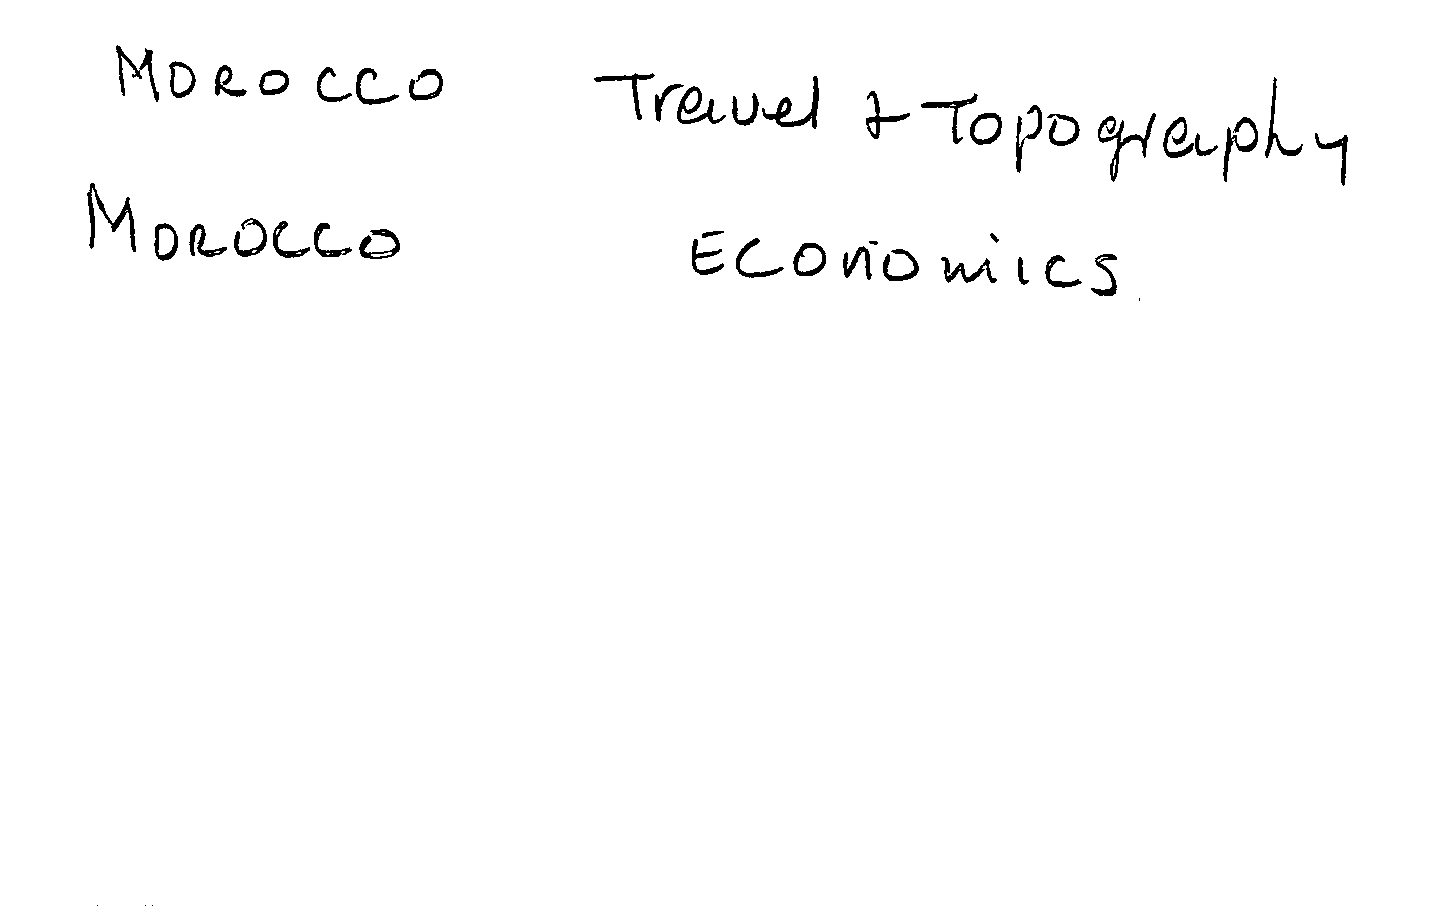 MOROCCO Travel & Topography
MOROCCO ECONOMICS